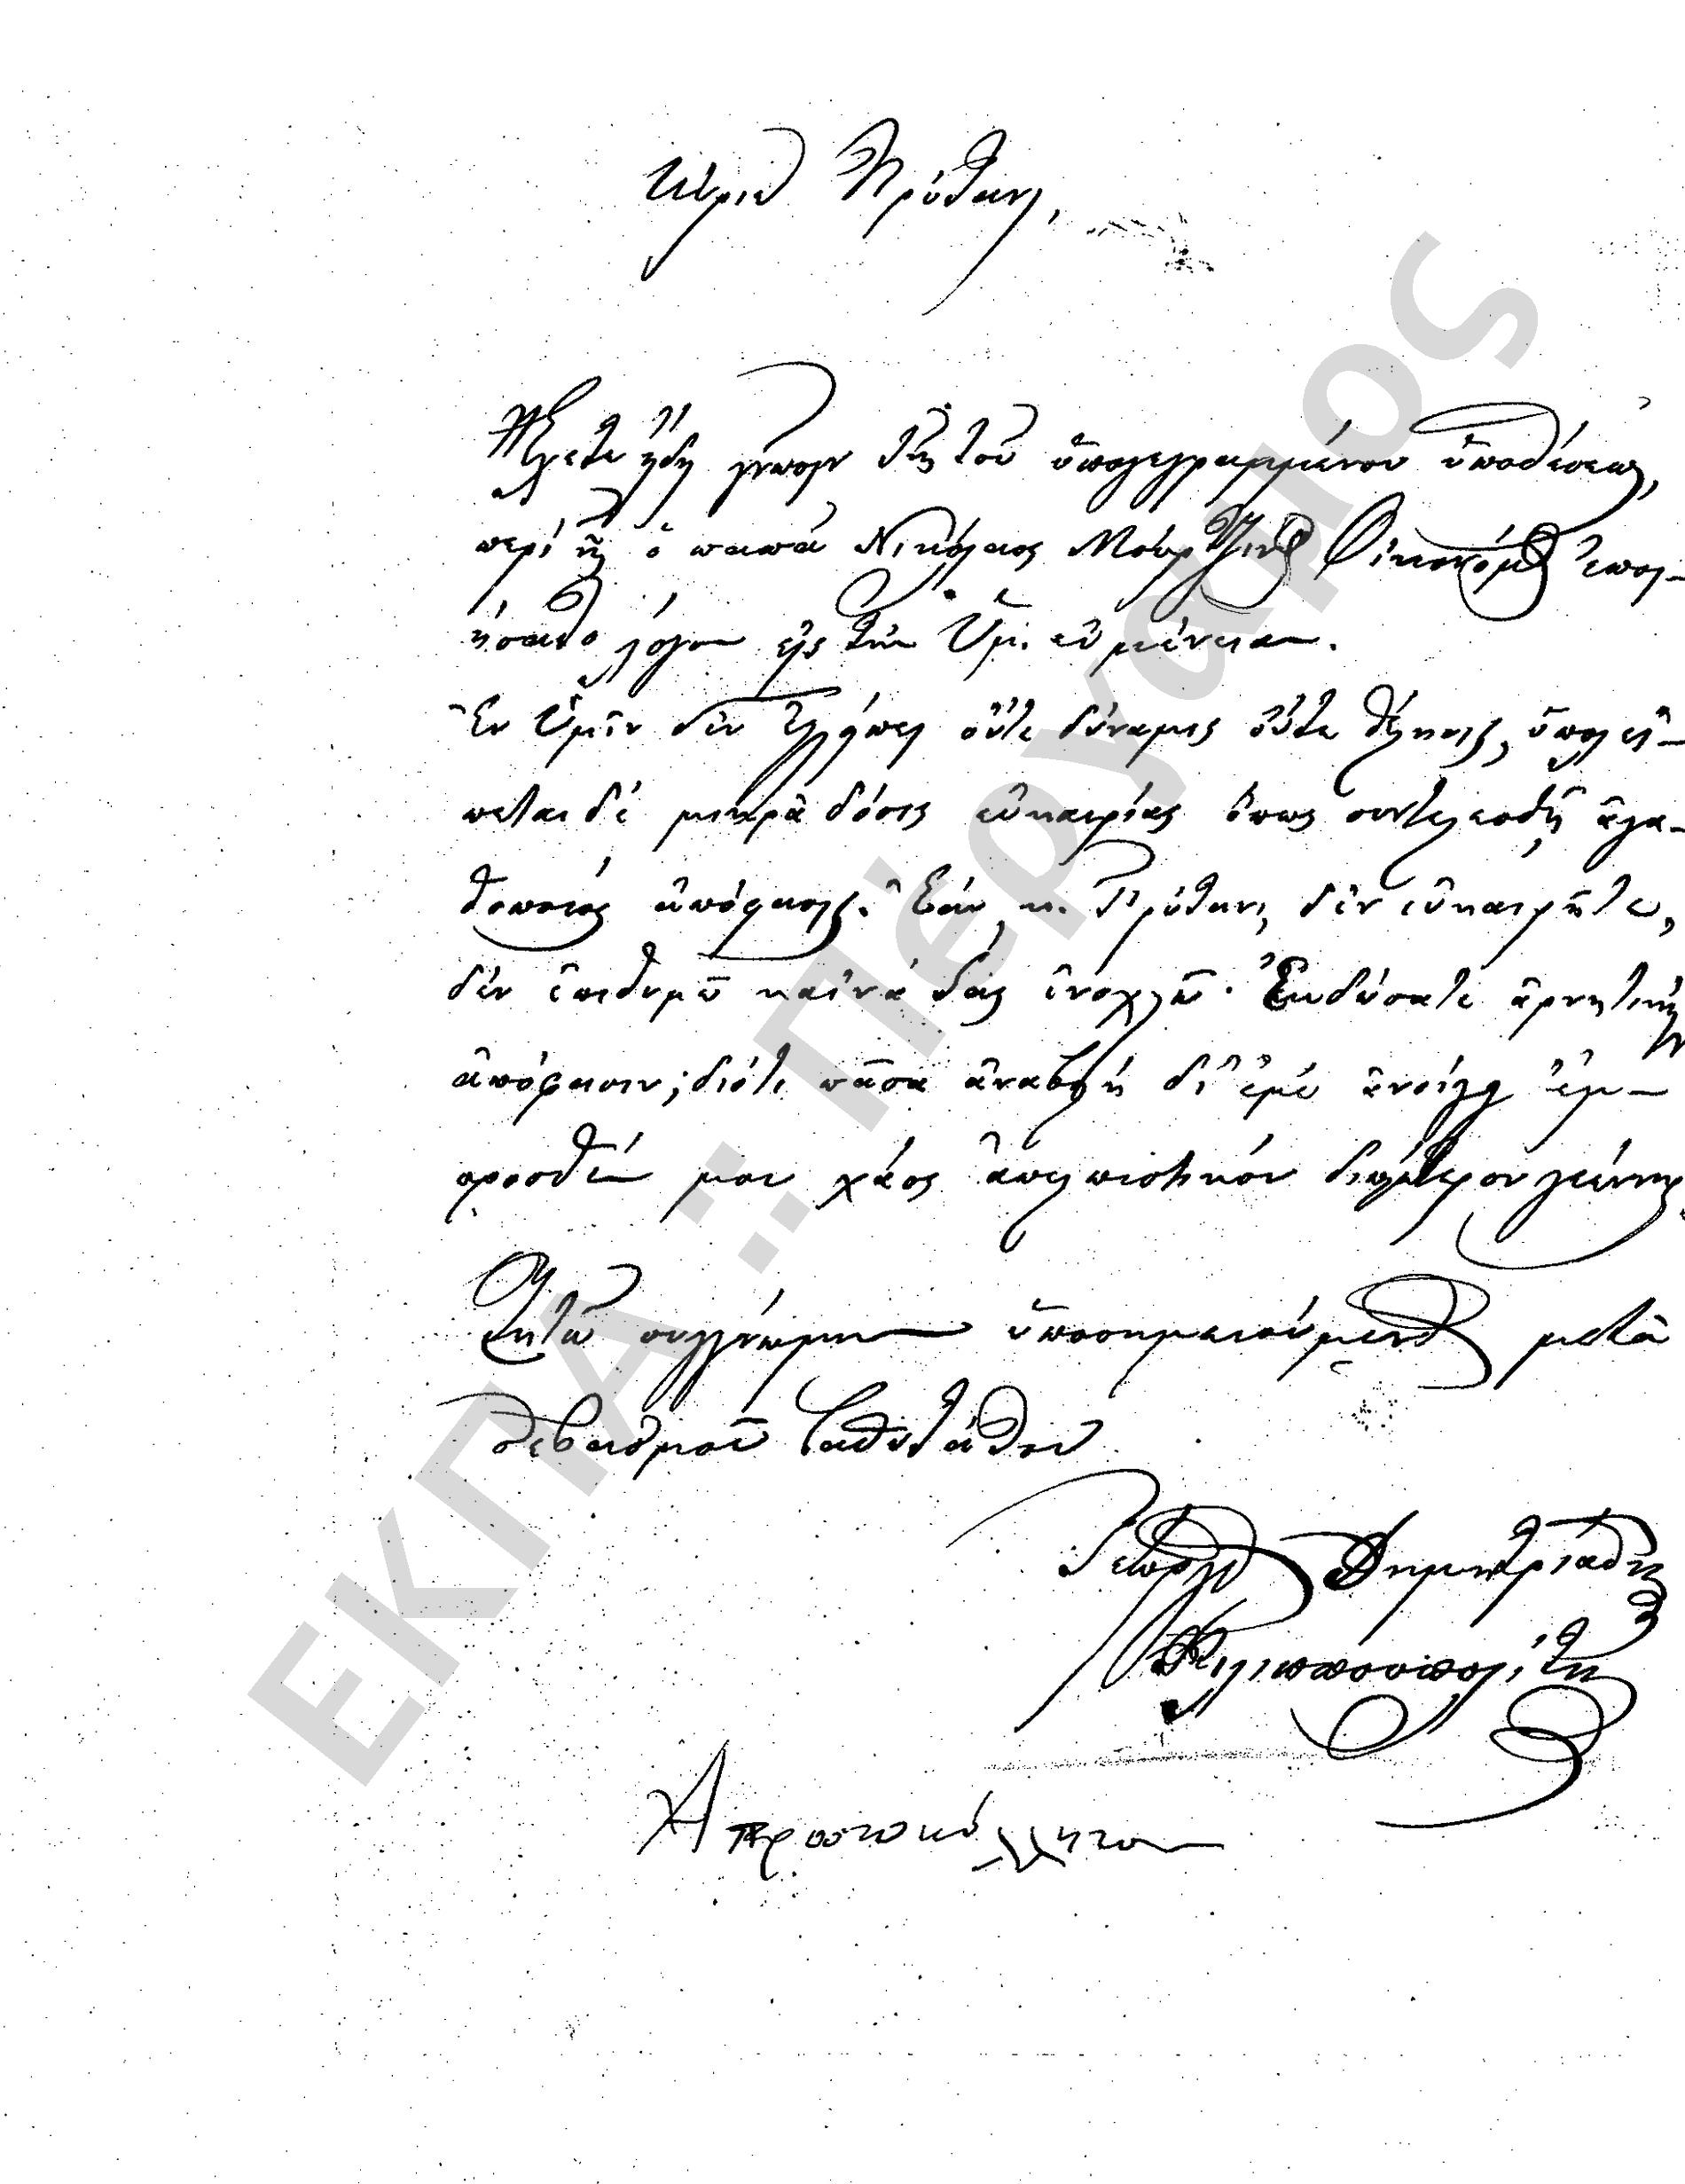 Κύριε Πρύτανι,
Ἔχετε ἤδη γνῶσιν τῆς τοῦ ὑπογεγραμμένου ὑποθέσεως,
περὶ ἧς ὁ παπᾶ Νικόλαος Μούρτζινος Οἰκονόμος ἐποι-
ήσατο λόγον εἰς τὴν Ὑμ. εὐμένειαν.
Ἐν Ὑμῖν δὲν ἐλλείπει οὔτε δύναμις οὔτε θέλησις, ὑπολεί-
πεται δὲ μικρὰ δόσις εὐκαιρίας ὅπως συντελεσθῇ ἀγα-
θοποιὸς ἀπόφασις. Ἐὰν κ. Πρύτανι, δὲν εὐκαιρῆτε,
δὲν ἐπιθυμῶ καὶ νὰ Σᾶς ἐνοχλῶ. Ἐκδόσατε ἀρνητικὴν
ἀπόφασιν; διότι πᾶσα ἀναβολὴ δι' ἐμὲ ἀνοίγει ἐμ-
προσθέν μου χάος ἀπελπιστικόν
Ζητῶ συγγνώμην ὑποσημειούμενος μετὰ
σεβασμοῦ βαθυτάτου
Γεώργιος Δημητριάδης
Φιλιππουπολίτης
Ἀπρωτοκόλλητον
ΕΚΠΑ :: Πέργαμος